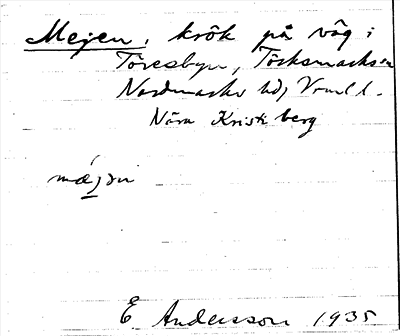 Mejen, krök på väg i
Töresbyn, Töcksmarks sn
Nordmarks hd, Vrml l.
Nära Kristi berg
E Andersson 1935